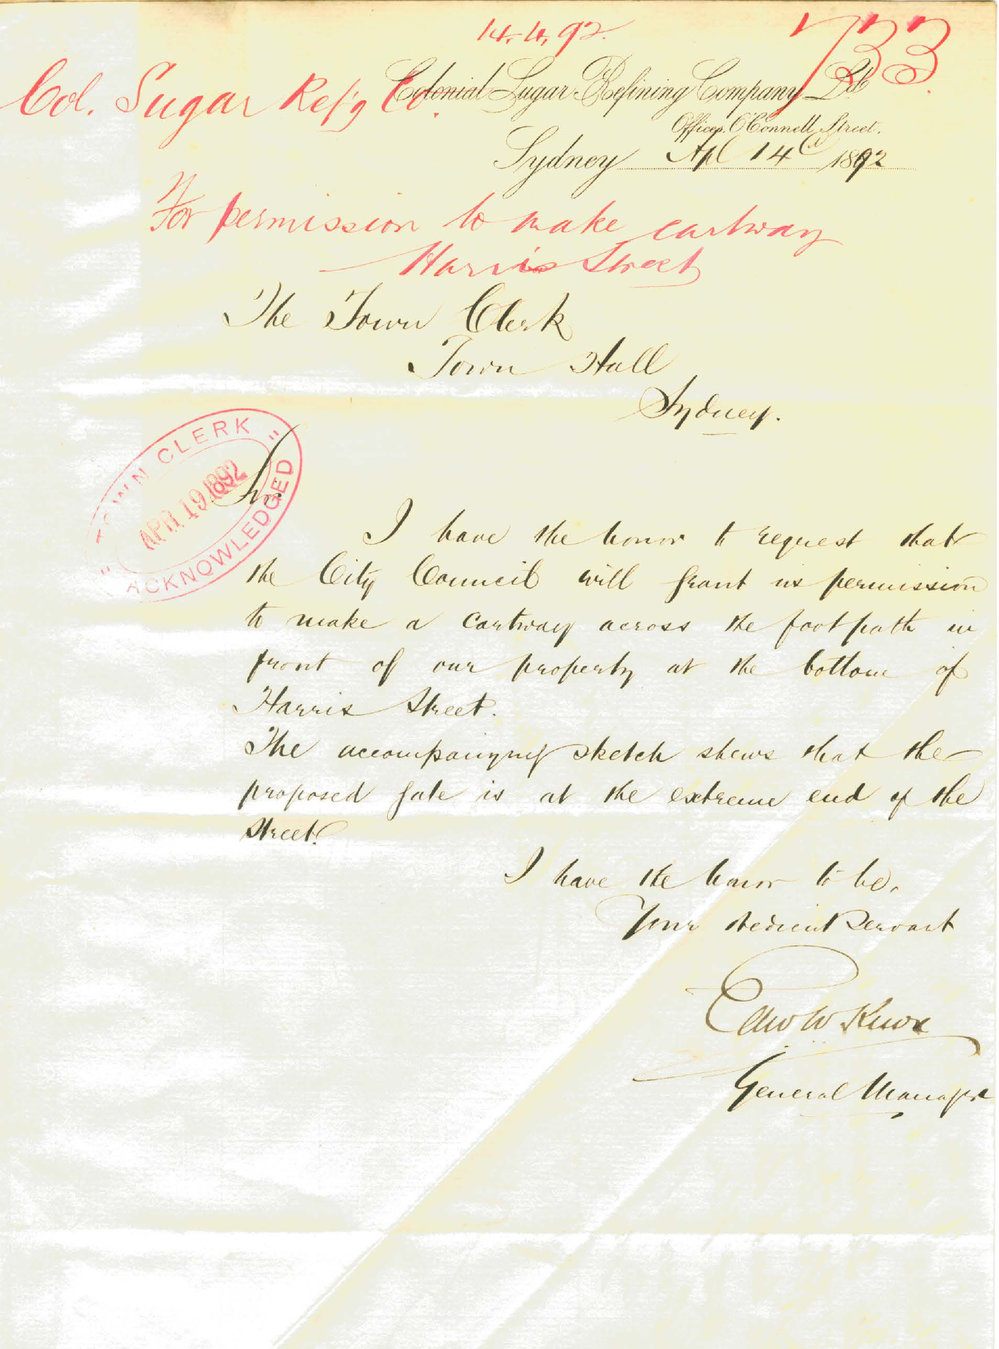 14.4.92.
733
Col. Sugar Ref'g Co.
Colonial Sugar Refining Company Ltd
Offices, O'Connell Street.
Sydney Apl 14th 1892
For permission to make cartway
Harris Street
The Town Clerk
Town Hall
Sydney.
TOWN CLERK
APR 19 1892
ACKNOWLEDGED
Sir
I have the honor to request that
the City Council will grant us permission
to make a cartway across the footpath in
front of our property at the bottom of
Harris Street.
The accompanying sketch shews that the
proposed gate is at the extreme end of the
street.
I have the honor to be,
Your obedient Servant
Edw W Knox
General Manager